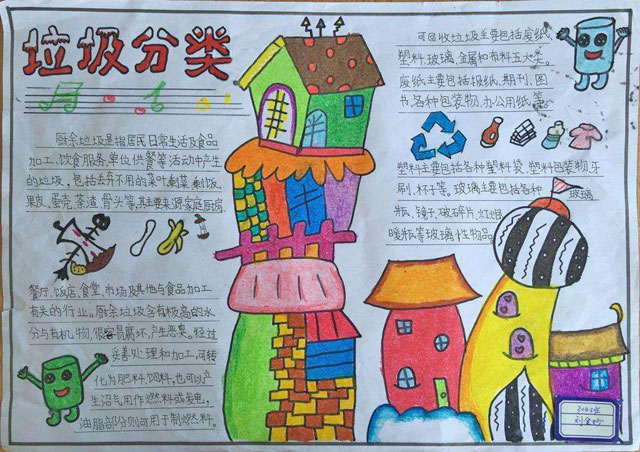 垃圾分类
厨余垃圾是指居民日常生活及食品
加工、饮食服务、单位供餐等活动中产生
的垃圾，包括丢弃不用的菜叶、剩菜、剩饭、
果皮、蛋壳、茶渣、骨头等，其主要来源家庭厨房、
餐厅、饭店、食堂、市场及其他与食品加工
有关的行业。厨余垃圾含有极高的水
分与有机物，很容易腐坏，产生恶臭。经过
妥善处理和加工，可转
化为肥料、饲料，也可以产
生沼气用作燃料或发电，
油脂部分则可用于制燃料。
可回收垃圾主要包括废纸、
塑料、玻璃、金属和布料五大类。
废纸主要包括报纸、期刊、图
书、各种包装物、办公用纸等
塑料主要包括各种塑料袋、塑料包装物、牙
刷、杯子等，玻璃主要包括各种
玻璃
瓶、镜子、破碎片、灯炮、
暖瓶等玻璃性物品
304班